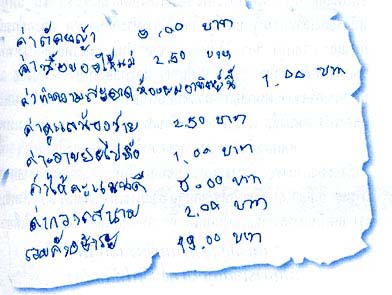 ค่าตัดหญ้า 5.00 บาท
ค่าซื้อของให้แม่ 2.50 บาท
ค่าทำความสะอาดห้องผมอาทิตย์นี้ 1.00 บาท
ค่าดูแลน้องชาย 2.50 บาท
ค่าเอาขยะไปทิ้ง 1.00 บาท
ค่าได้คะแนนดี 5.00 บาท
ค่ากวาดสนาม 2.00 บาท
รวมค้างชำระ 19.00 บาท